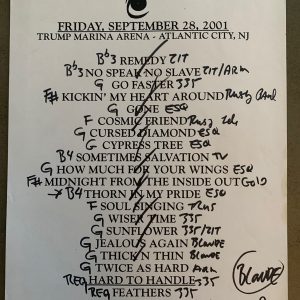 FRIDAY, SEPTEMBER 28, 2001
TRUMP MARINA ARENA - ATLANTIC CITY, NJ
Bb3 REMEDY ZIT
Bb3 NO SPEAK NO SLAVE ZIT/ARM
G GO FASTER 335
F# KICKIN' MY HEART AROUND Rusty
G GONE ESQ
F COSMIC FRIEND
G CURSED DIAMOND ESQ
G CYPRESS TREE ESQ
B4 SOMETIMES SALVATION TV
G HOW MUCH FOR YOUR WINGS ESQ
F# MIDNIGHT FROM THE INSIDE OUT Gold
→ B4 THORN IN MY PRIDE ESQ
F SOUL SINGING
G WISER TIME 335
G SUNFLOWER 335/ZIT
G JEALOUS AGAIN Blonde
G THICK N THIN Blonde
G TWICE AS HARD ARM
Reg HARD TO HANDLE 335
Reg FEATHERS 335
Blonde